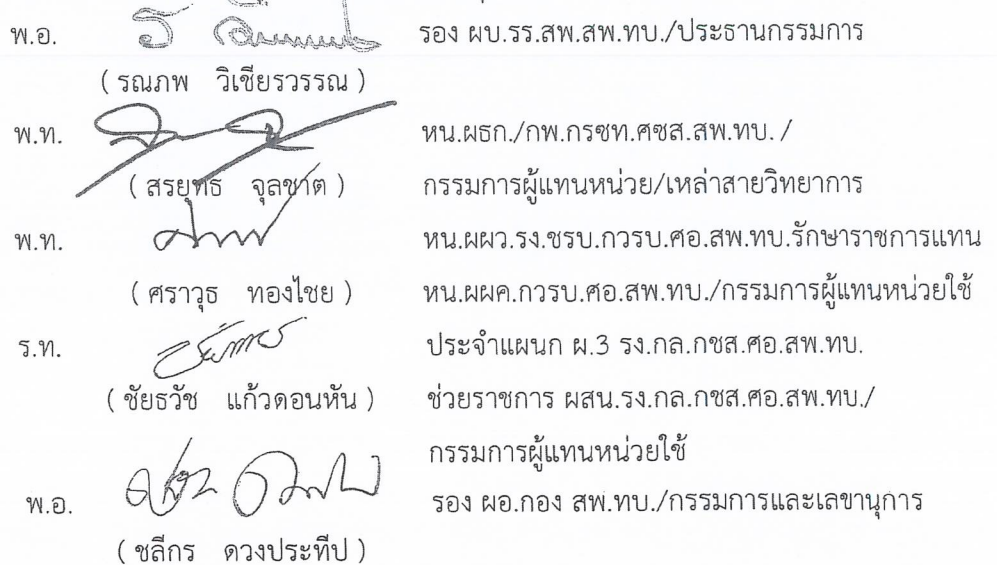 พ.อ. รอง ผบ.รร.สพ.สพ.ทบ./ประธานกรรมการ
( รณภพ วิเชียรวรรณ )
พ.ท. หน.ผธก./กพ.กรซท.ศซส.สพ.ทบ. /
( สรยุทธ จุลชาต ) กรรมการผู้แทนหน่วย/เหล่าสายวิทยาการ
พ.ท. หน.ผผว.รง.ชรบ.กวรบ.ศอ.สพ.ทบ.รักษาราชการแทน
( ศราวุธ ทองไชย ) หน.ผผค.กวรบ.ศอ.สพ.ทบ./กรรมการผู้แทนหน่วยใช้
ร.ท. ประจำแผนก ผ.3 รง.กล.กซส.ศอ.สพ.ทบ.
( ชัยธวัช แก้วดอนหัน ) ช่วยราชการ ผสน.รง.กล.กซส.ศอ.สพ.ทบ./
กรรมการผู้แทนหน่วยใช้
พ.อ. รอง ผอ.กอง สพ.ทบ./กรรมการและเลขานุการ
( ชลีกร ดวงประทีป )